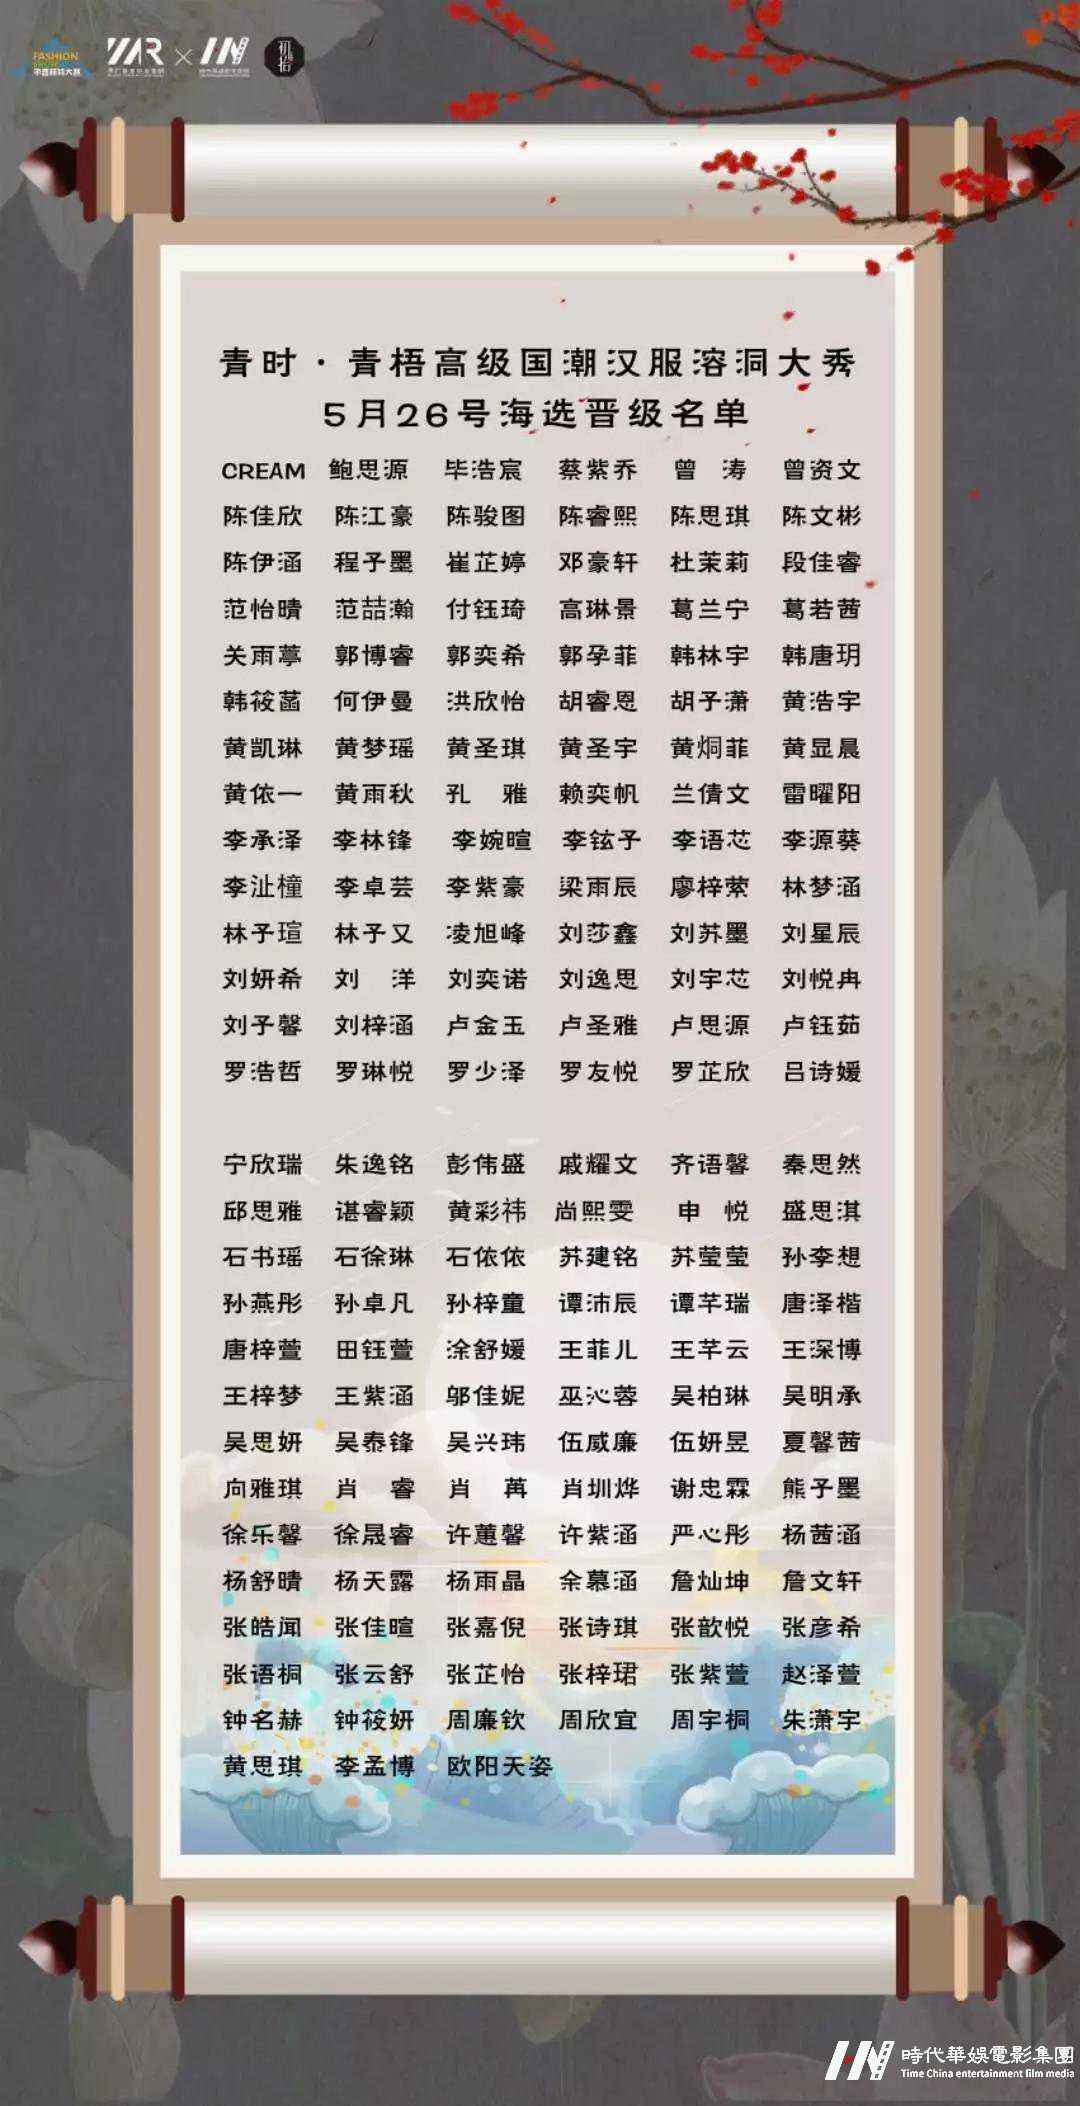 FASHION
初拾
青时·青梧高级国潮汉服溶洞大秀
5月26号海选晋级名单
CREAM 鲍思源 毕浩宸 蔡紫乔 曾 涛 曾资文
陈佳欣 陈江豪 陈骏图 陈睿熙 陈思琪 陈文彬
陈伊涵 程予墨 崔芷婷 邓豪轩 杜茉莉 段佳睿
范怡晴 范喆瀚 付钰琦 高琳景 葛兰宁 葛若茜
关雨葶 郭博睿 郭奕希 郭孕菲 韩林宇 韩唐玥
韩筱菡 何伊曼 洪欣怡 胡睿恩 胡子潇 黄浩宇
黄凯琳 黄梦瑶 黄圣琪 黄圣宇 黄炯菲 黄显晨
黄依一 黄雨秋 孔 雅 赖奕帆 兰倩文 雷曜阳
李承泽 李林锋 李婉暄 李铉予 李语芯 李源葵
李沚橦 李卓芸 李紫豪 梁雨辰 廖梓萦 林梦涵
林予瑄 林予又 凌旭峰 刘莎鑫 刘苏墨 刘星辰
刘妍希 刘 洋 刘奕诺 刘逸思 刘宇芯 刘悦冉
刘予馨 刘梓涵 卢金玉 卢圣雅 卢思源 卢钰茹
罗浩哲 罗琳悦 罗少泽 罗友悦 罗芷欣 吕诗媛
宁欣瑞 朱逸铭 彭伟盛 戚耀文 齐语馨 秦思然
邱思雅 谌睿颖 黄彩祎 尚熙雯 申 悦 盛思淇
石书瑶 石徐琳 石依依 苏建铭 苏莹莹 孙李想
孙燕彤 孙卓凡 孙梓童 谭沛辰 谭芊瑞 唐泽楷
唐梓萱 田钰萱 涂舒媛 王菲儿 王芊云 王深博
王梓梦 王紫涵 邬佳妮 巫沁蓉 吴柏琳 吴明承
吴思妍 吴泰锋 吴兴玮 伍威廉 伍妍昱 夏馨茜
向雅琪 肖 睿 肖 苒 肖圳烨 谢忠霖 熊子墨
徐乐馨 徐晟睿 许蕙馨 许紫涵 严心彤 杨茜涵
杨舒晴 杨天露 杨雨晶 余慕涵 詹灿坤 詹文轩
张皓闻 张佳暄 张嘉倪 张诗琪 张歆悦 张彦希
张语桐 张云舒 张芷怡 张梓珺 张紫萱 赵泽萱
钟名赫 钟筱妍 周廉钦 周欣宜 周宇桐 朱潇宇
黄思琪 李孟博 欧阳天姿
時代華娛電影集團
Time China entertainment film media